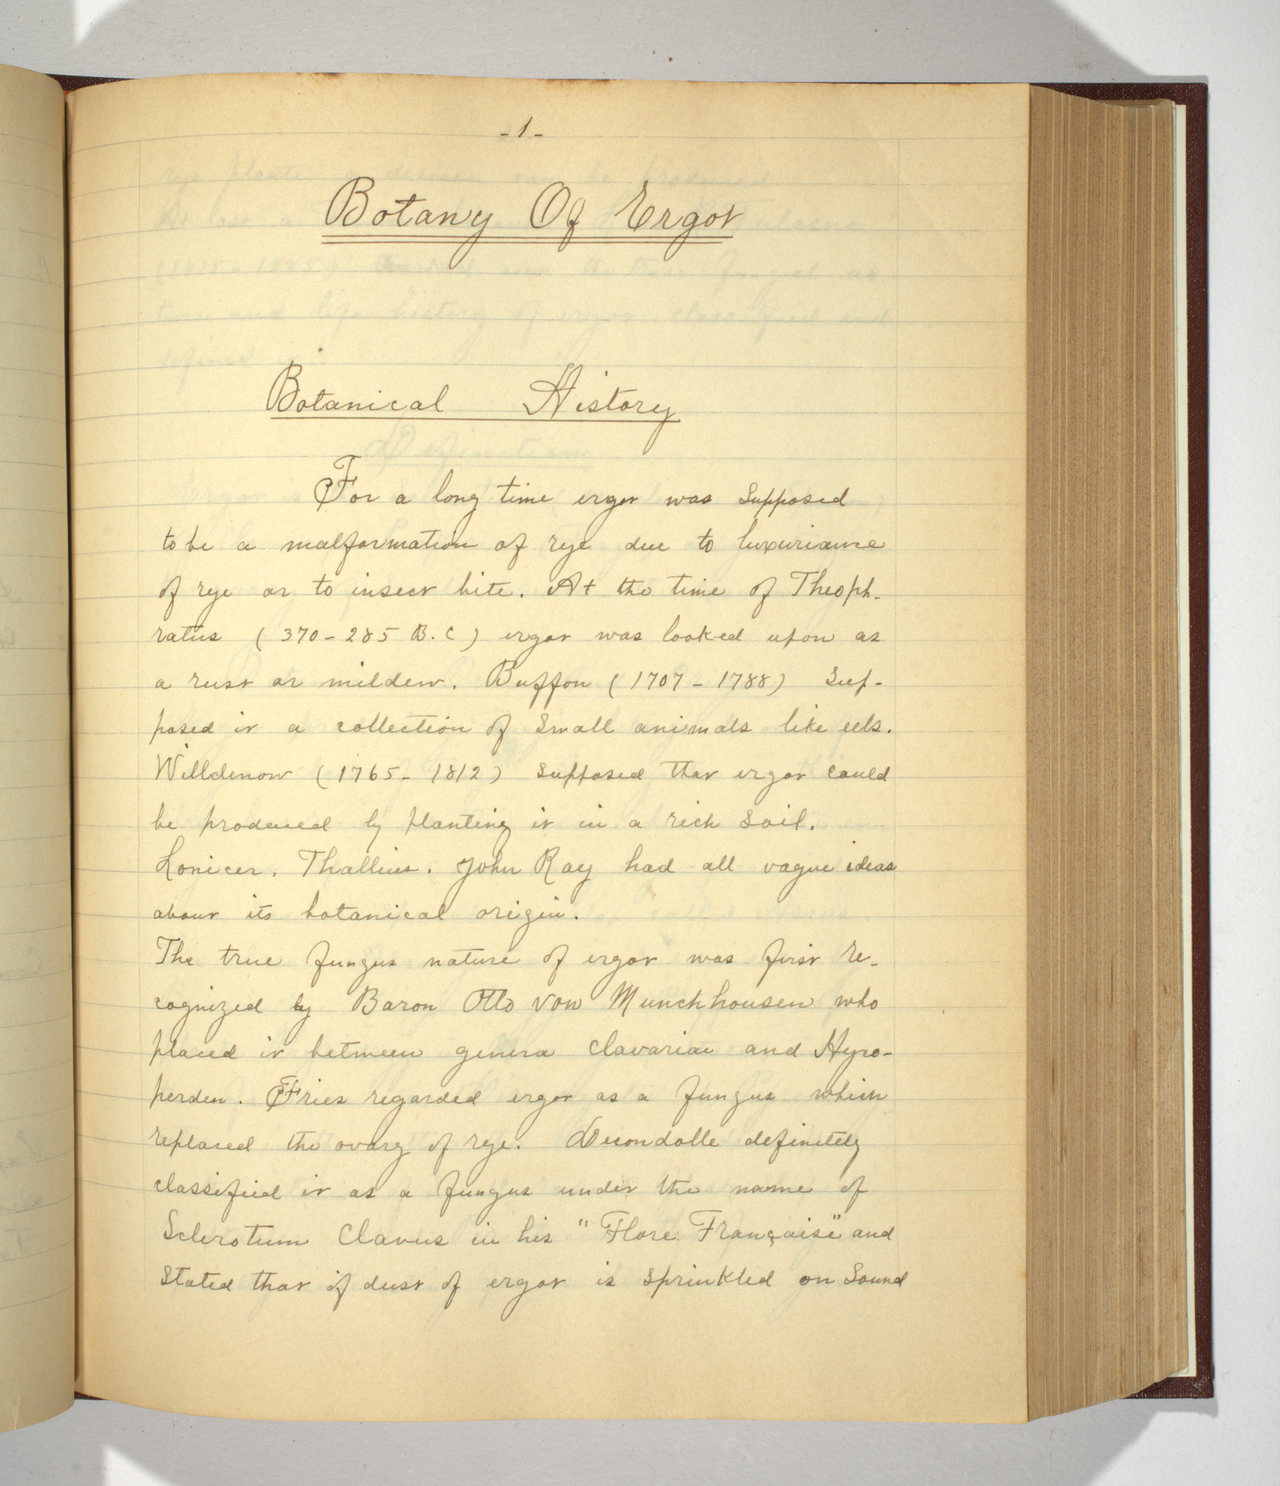 -1-
Botany Of Ergot
Botanical History
For a long time ergot was supposed
to be a malformation of rye due to luxuriance
of rye or to insect bite. At the time of Theoph-
ratus (370-285 B.C) ergot was looked upon as
a rust or mildew. Buffon (1707-1788) Sup-
posed it a collection of small animals like eels.
Willdenow (1765-1812) supposed that ergot could
be produced by planting it in a rich soil.
Lonicer, Thallius, John Ray had all vague ideas
about its botanical origin.
The true fungus nature of ergot was first re-
cognized by Baron Otto von Munchhousen who
placed it between genera Clavariae and Hyro-
perden. Fries regarded ergot as a fungus which
replaced the ovary of rye. Decondolle definitely
classified it as a fungus under the name of
Sclerotium Clavus in his "Flore Française" and
stated that if dust of ergot is sprinkled on sound